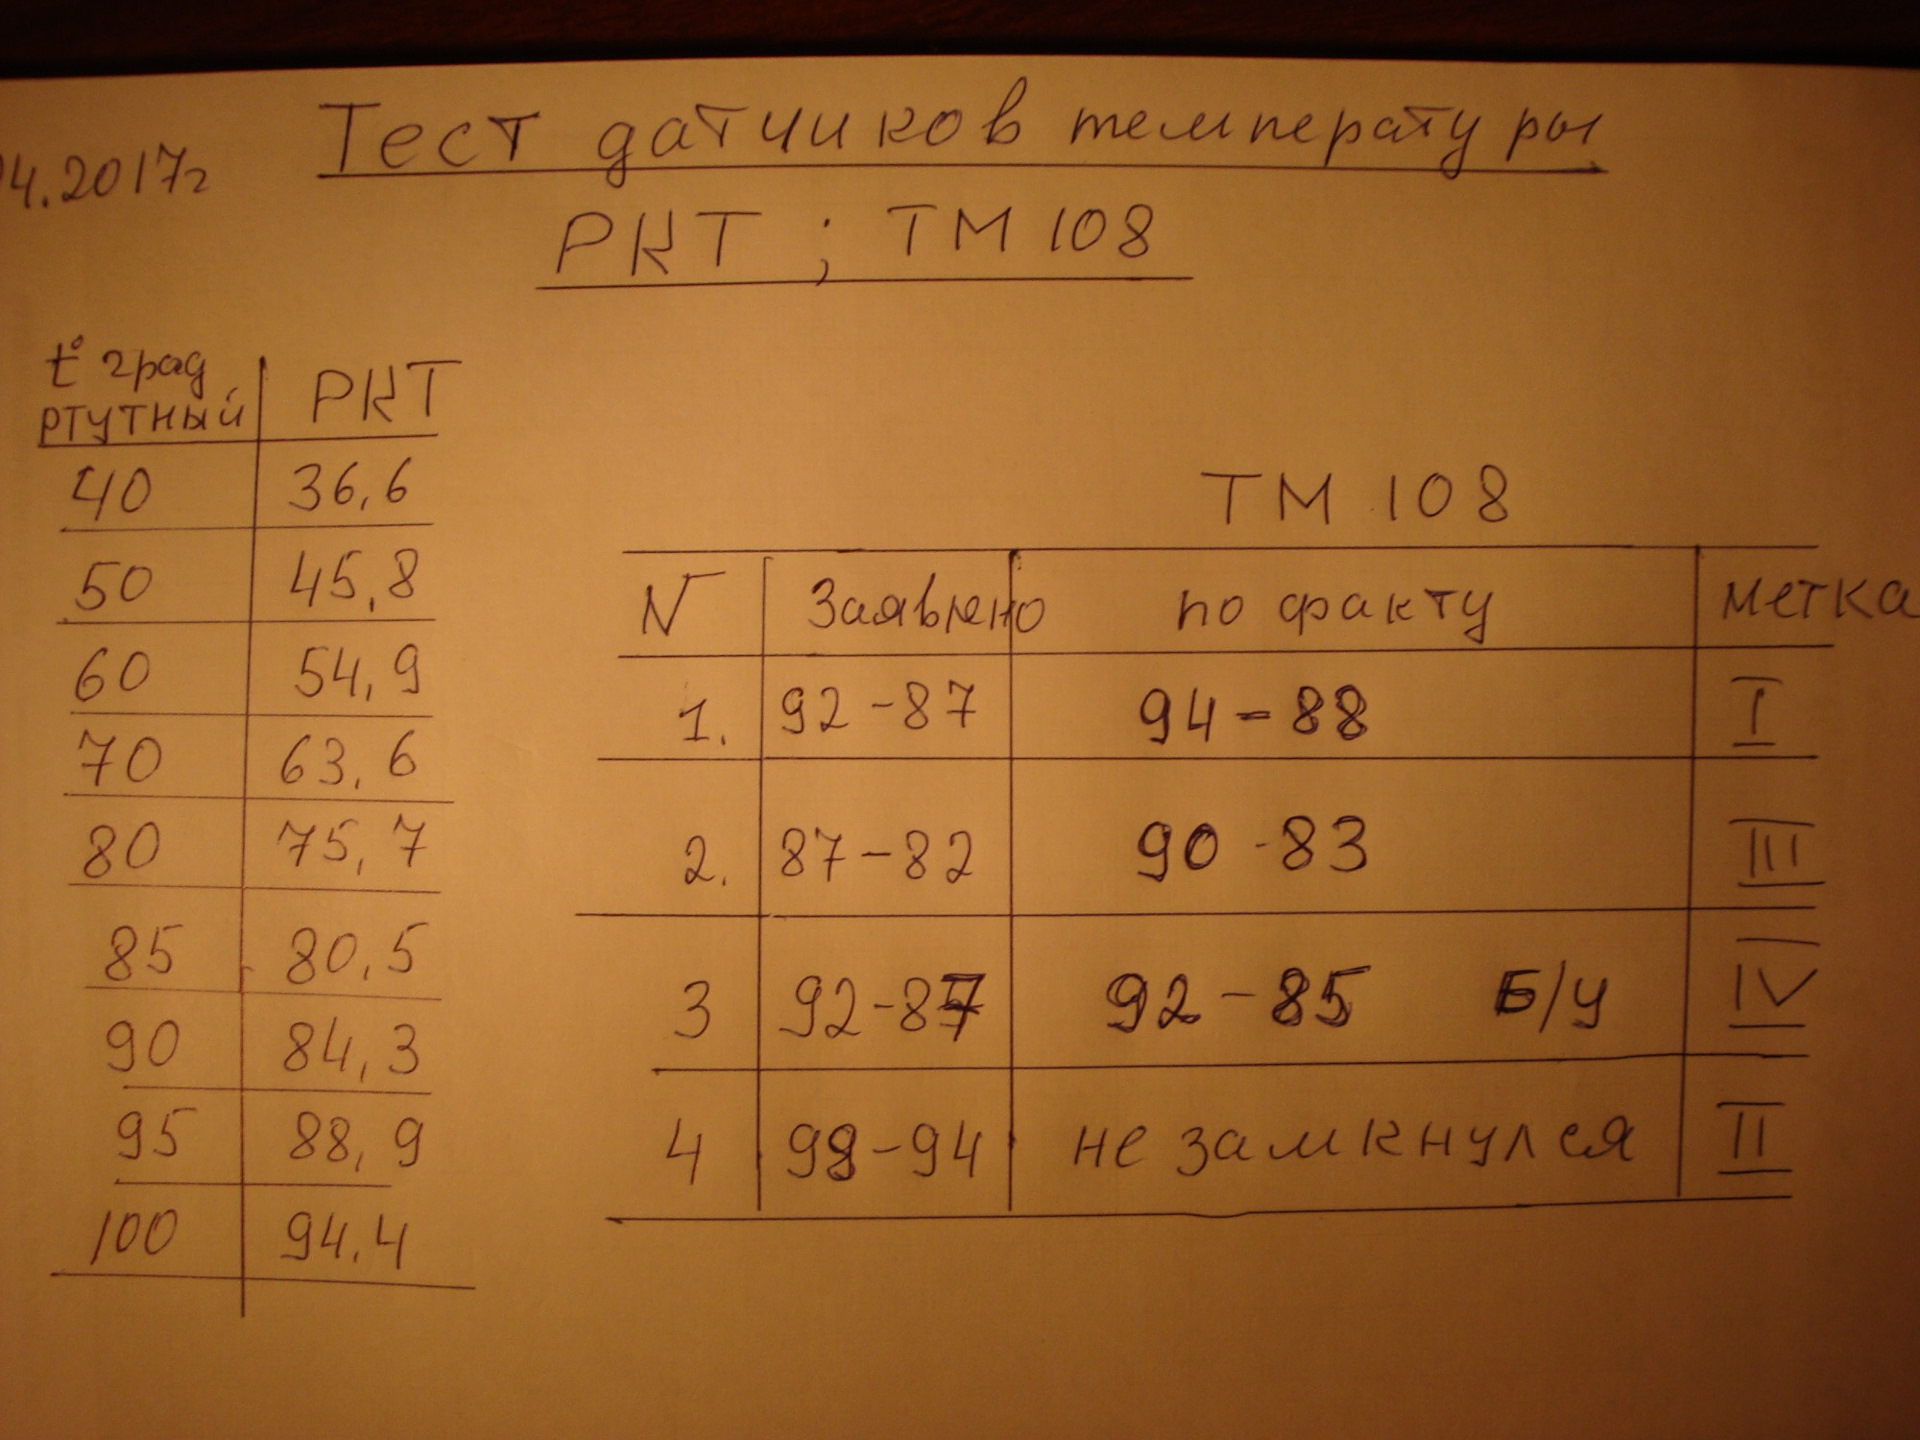 04.2017г
Тест датчиков температуры
РКТ ; ТМ 108
t° град РКТ
ртутный
40 36,6
50 45,8
60 54,9
70 63,6
80 75,7
85 80,5
90 84,3
95 88,9
100 94,4
ТМ 108
N Заявлено по факту метка
1. 92-87 94-88 I
2. 87-82 90-83 III
3 92-87 92-85 Б/у IV
4 99-94 не замкнулся II